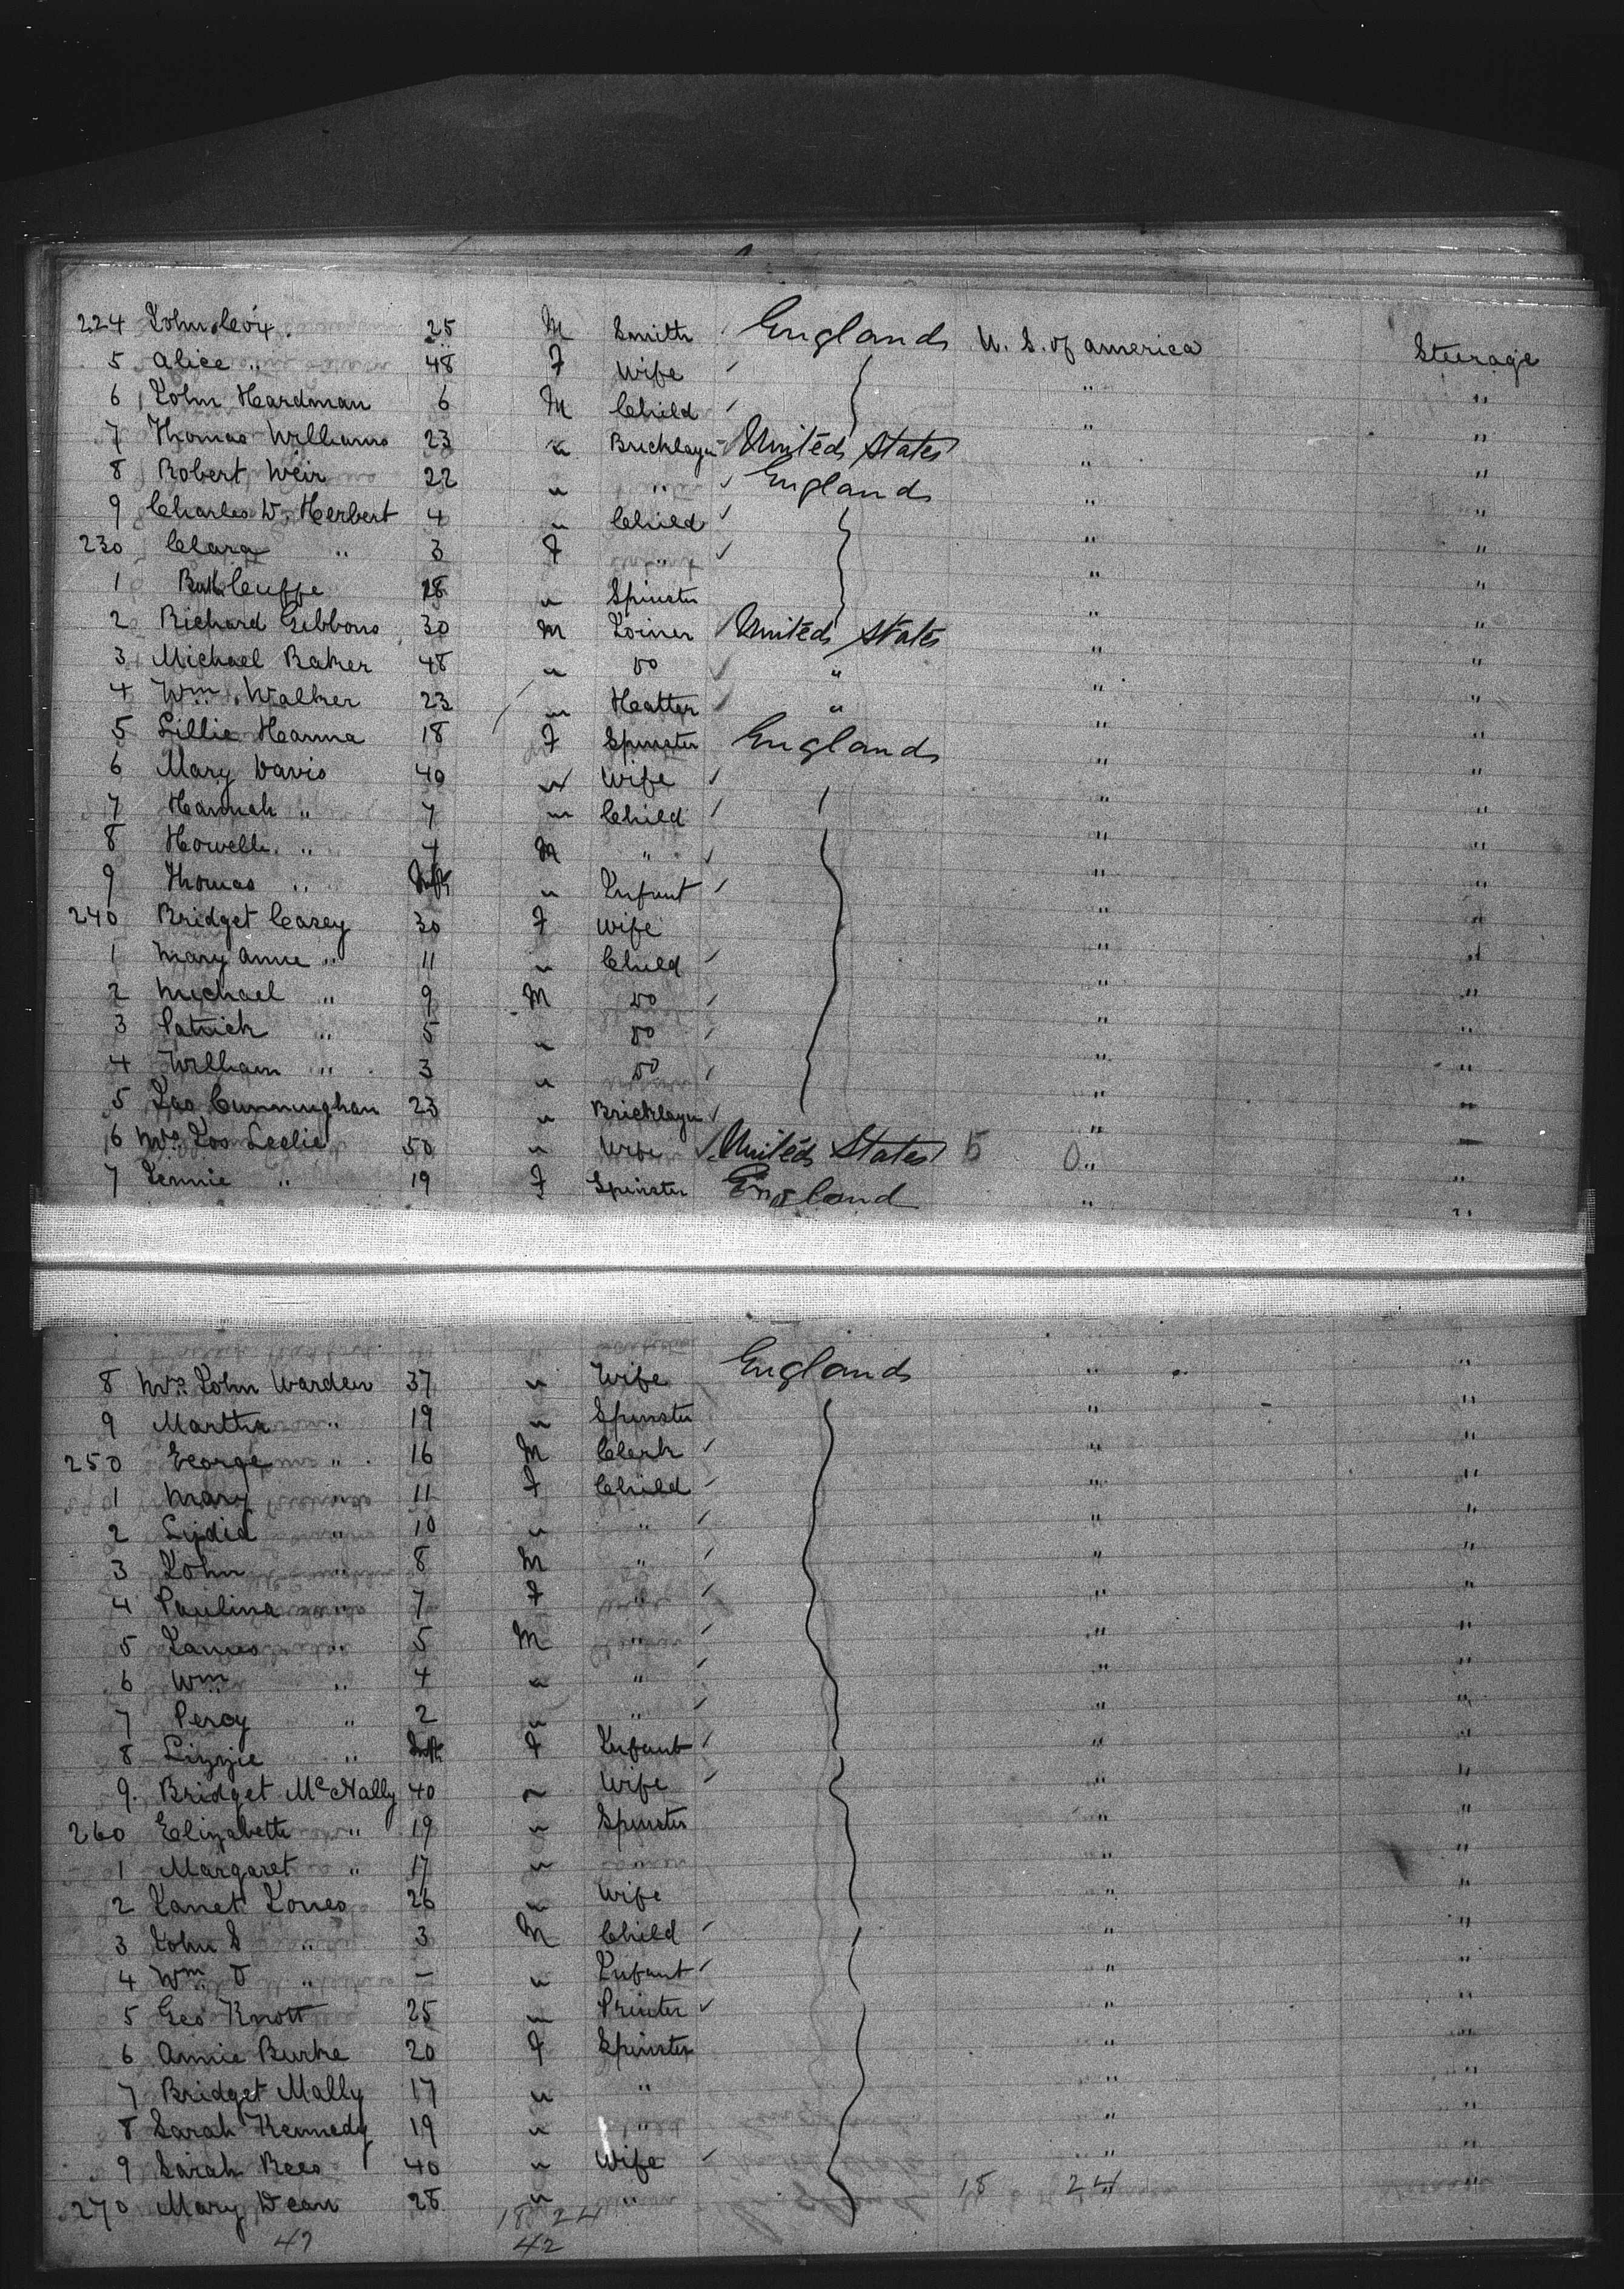 224 John Levy 25 M Smith England U. S. of america Steerage
5 Alice " 48 F Wife " "
6 John Hardman 6 M Child " "
7 Thomas Williams 23 " Bricklayer United States " "
8 Robert Weir 22 " " England " "
9 Charles W. Herbert 4 " Child " "
230 Clara " 3 F " " "
1 Cuffe 28 " Spinster " "
2 Richard Gibbons 30 M Joiner United States " "
3 Michael Baker 48 " Do " " "
4 Wm. Walker 23 " Heatter " " "
5 Lillie Hanna 18 F Spinster England " "
6 Mary Davis 40 " Wife " "
7 Hannah " 7 " Child " "
8 Howell " 4 M " " "
9 Thomas " Inft " Infant " "
240 Bridget Casey 30 F Wife " "
1 Mary Anne " 11 " Child " "
2 Michael " 9 M Do " "
3 Patrick " 5 " Do " "
4 William " 3 " Do " "
5 Jas Cunningham 23 " Bricklayer " "
6 Mrs Jos Leslie 50 " Wife United States 5 0 " "
7 Jennie " 19 F Spinster England " "
8 Mrs. John Warden 37 " Wife England " "
9 Martha " 19 " Spinster " "
250 George " 16 M Clerk " "
1 Mary 11 F Child " "
2 Lydia " 10 " " " "
3 John " 8 M " " "
4 Paulina 7 F " " "
5 James " 5 M " " "
6 Wm " 4 " " " "
7 Percy " 2 " " " "
8 Lizzie " Inft F Infant " "
9. Bridget McNally 40 " Wife " "
260 Elizabeth " 19 " Spinster " "
1 Margaret " 17 " " "
2 Janet Jones 26 " Wife " "
3 John S " 3 M Child " "
4 Wm " – " Infant " "
5 Geo Knott 25 " Printer " "
6 Annie Burke 20 F Spinster " "
7 Bridget Mally 17 " " " "
8 Sarah Kennedy 19 " " " "
9 Sarah Rees 40 " Wife " "
270 Mary Dean 28 " " 18 24 "
18 24
47 42